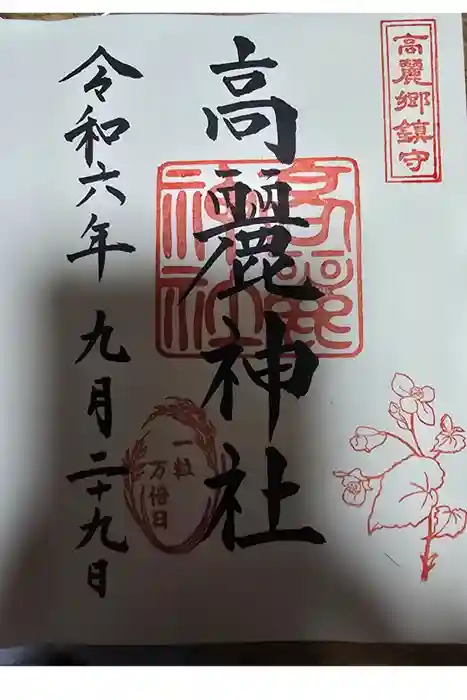 高麗郷鎮守
高麗神社
高麗神社
一粒
万倍日
令和六年 九月二十九日